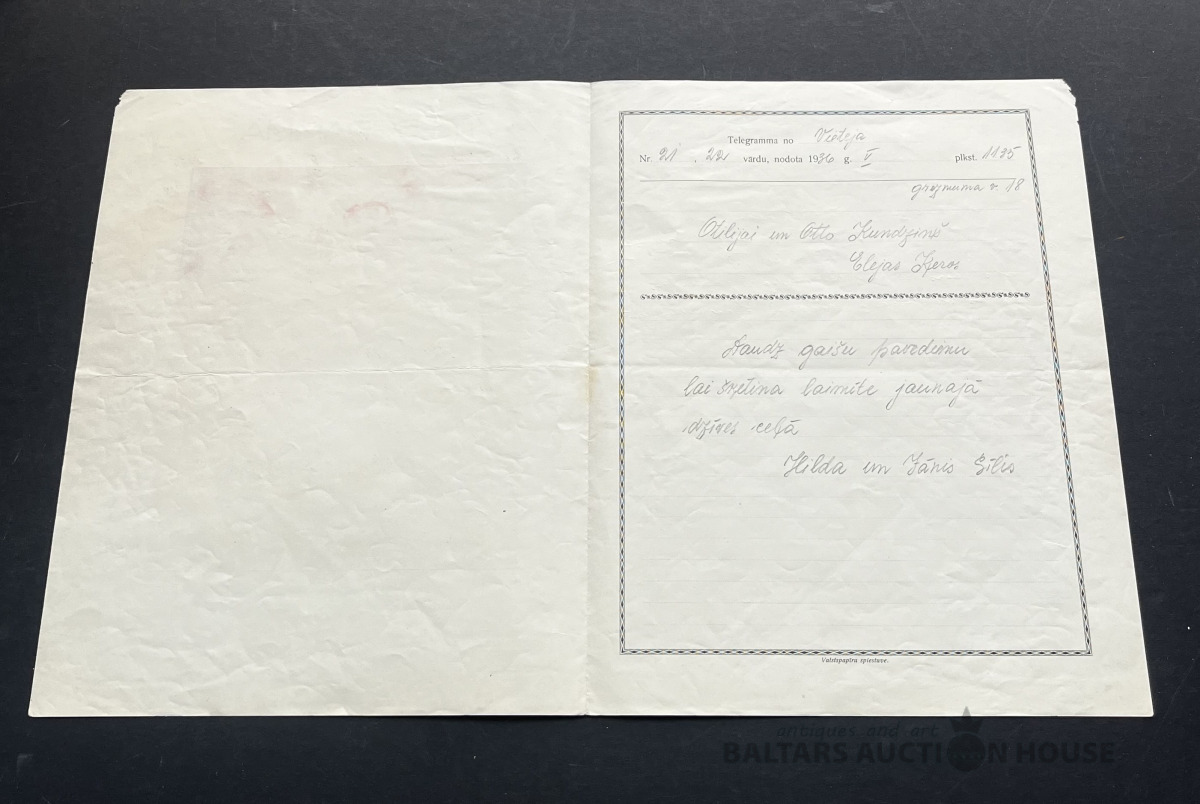 Telegramma no
Nr. 21 , 22 vārdu, nodota 1936 g. V plkst. 11 35
v. 18
Otilijai un Otto Kundziņš
Elejas
Daudz gaišu pavedienu
lai šķetina laimīte jaunajā
dzīves ceļā
Hilda un Jānis Sīlis
Valstspapīru spiestuve.
antiques and art
BALTARS AUCTION HOUSE